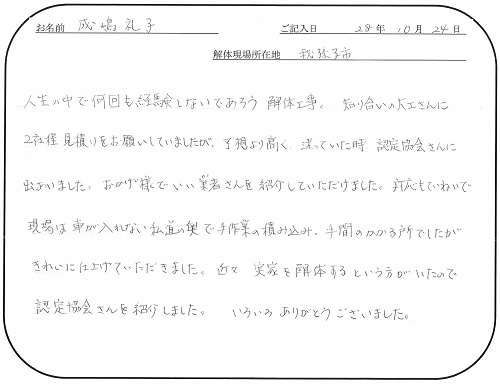 お名前 成嶋 礼子 ご記入日 28年 10月 24日
解体現場所在地 我孫子市
人生の中で何回も経験しないであろう 解体工事。 知り合いの大工さんに
2社程 見積りをお願いしていましたが、予想より高く 迷っていた時 認定協会さんに
出会いました。おかげ様で いい業者さんを紹介していただけました。対応もていねいで
現場は 車が入れない私道の奥で手作業の積み込み、手間のかかる所でしたが
きれいに仕上げていただきました。近々 実家を解体するという方がいたので
認定協会さんを紹介しました。 いろいろ ありがとうございました。